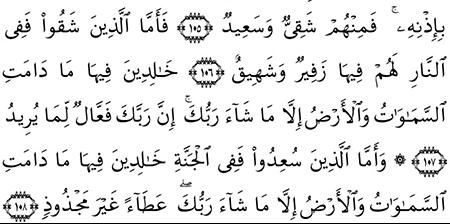 بِإِذْنِهِۦۚ فَمِنْهُمْ شَقِىٌّ وَسَعِيدٌ ﴿١٠٥﴾ فَأَمَّا ٱلَّذِينَ شَقُوا۟ فَفِى
ٱلنَّارِ لَهُمْ فِيهَا زَفِيرٌ وَشَهِيقٌ ﴿١٠٦﴾ خَـٰلِدِينَ فِيهَا مَا دَامَتِ
ٱلسَّمَـٰوَٰتُ وَٱلْأَرْضُ إِلَّا مَا شَآءَ رَبُّكَۚ إِنَّ رَبَّكَ فَعَّالٌ لِّمَا يُرِيدُ
﴿١٠٧﴾ ۞ وَأَمَّا ٱلَّذِينَ سُعِدُوا۟ فَفِى ٱلْجَنَّةِ خَـٰلِدِينَ فِيهَا مَا دَامَتِ
ٱلسَّمَـٰوَٰتُ وَٱلْأَرْضُ إِلَّا مَا شَآءَ رَبُّكَۖ عَطَآءً غَيْرَ مَجْذُوذٍ ﴿١٠٨﴾